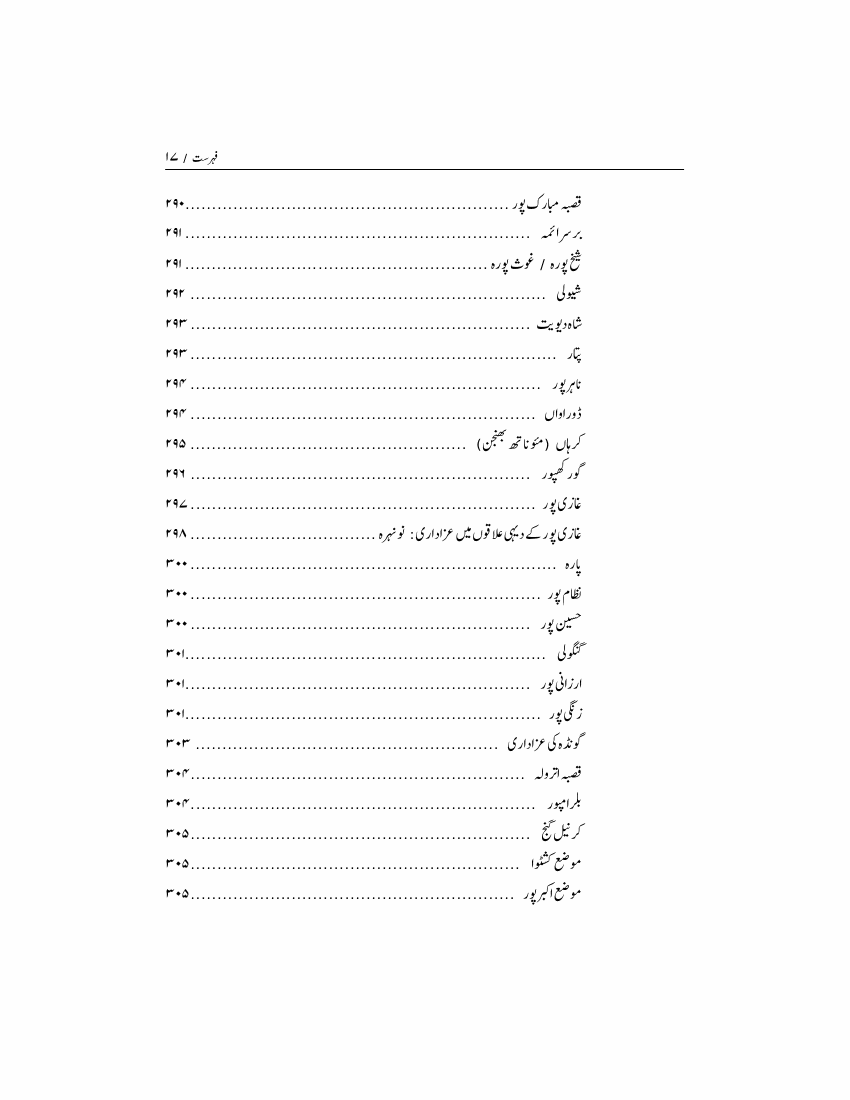 فہرست / ۱۷
قصبہ مبارک پور ............................................................. ۲۹۰
بر سرائمہ ................................................................. ۲۹۱
شیخ پورہ / غوث پورہ ......................................................... ۲۹۱
شیولی .................................................................... ۲۹۲
شاہ دیویت ................................................................ ۲۹۳
پتار ..................................................................... ۲۹۳
ناہر پور .................................................................. ۲۹۴
ڈوراواں ................................................................. ۲۹۴
کرہاں (مئو ناتھ بھنجن) .................................................... ۲۹۵
گورکھپور ................................................................ ۲۹۶
غازی پور ................................................................. ۲۹۷
غازی پور کے دیہی علاقوں میں عزاداری: نونہرہ ................................... ۲۹۸
پارہ ..................................................................... ۳۰۰
نظام پور .................................................................. ۳۰۰
حسین پور ................................................................ ۳۰۰
گنگولی ................................................................... ۳۰۱
ارزانی پور ................................................................ ۳۰۱
زنگی پور .................................................................. ۳۰۱
گونڈہ کی عزاداری ......................................................... ۳۰۳
قصبہ اترولہ ............................................................... ۳۰۴
بلرامپور ................................................................. ۳۰۴
کرنیل گنج ................................................................ ۳۰۵
موضع کشٹوا .............................................................. ۳۰۵
موضع اکبر پور ............................................................. ۳۰۵